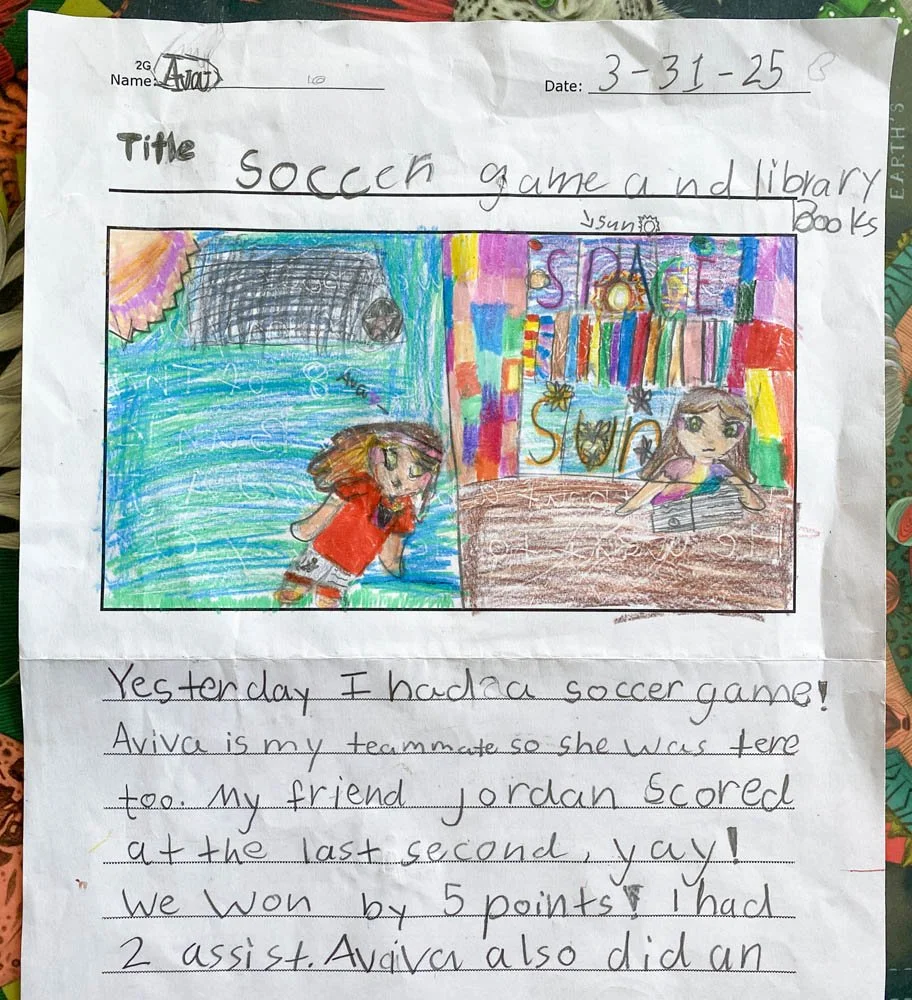 2G
Name: Avaı
Date: 3-31-25
Title soccer game and library
Books
sun
SPACE
Ava
Sun
Yesterday I had a soccer game!
Aviva is my teammate so she was tere
too. My friend Jordan scored
at the last second, yay!
We won by 5 points! I had
2 assist. Avaiva also did an
EARTH'S